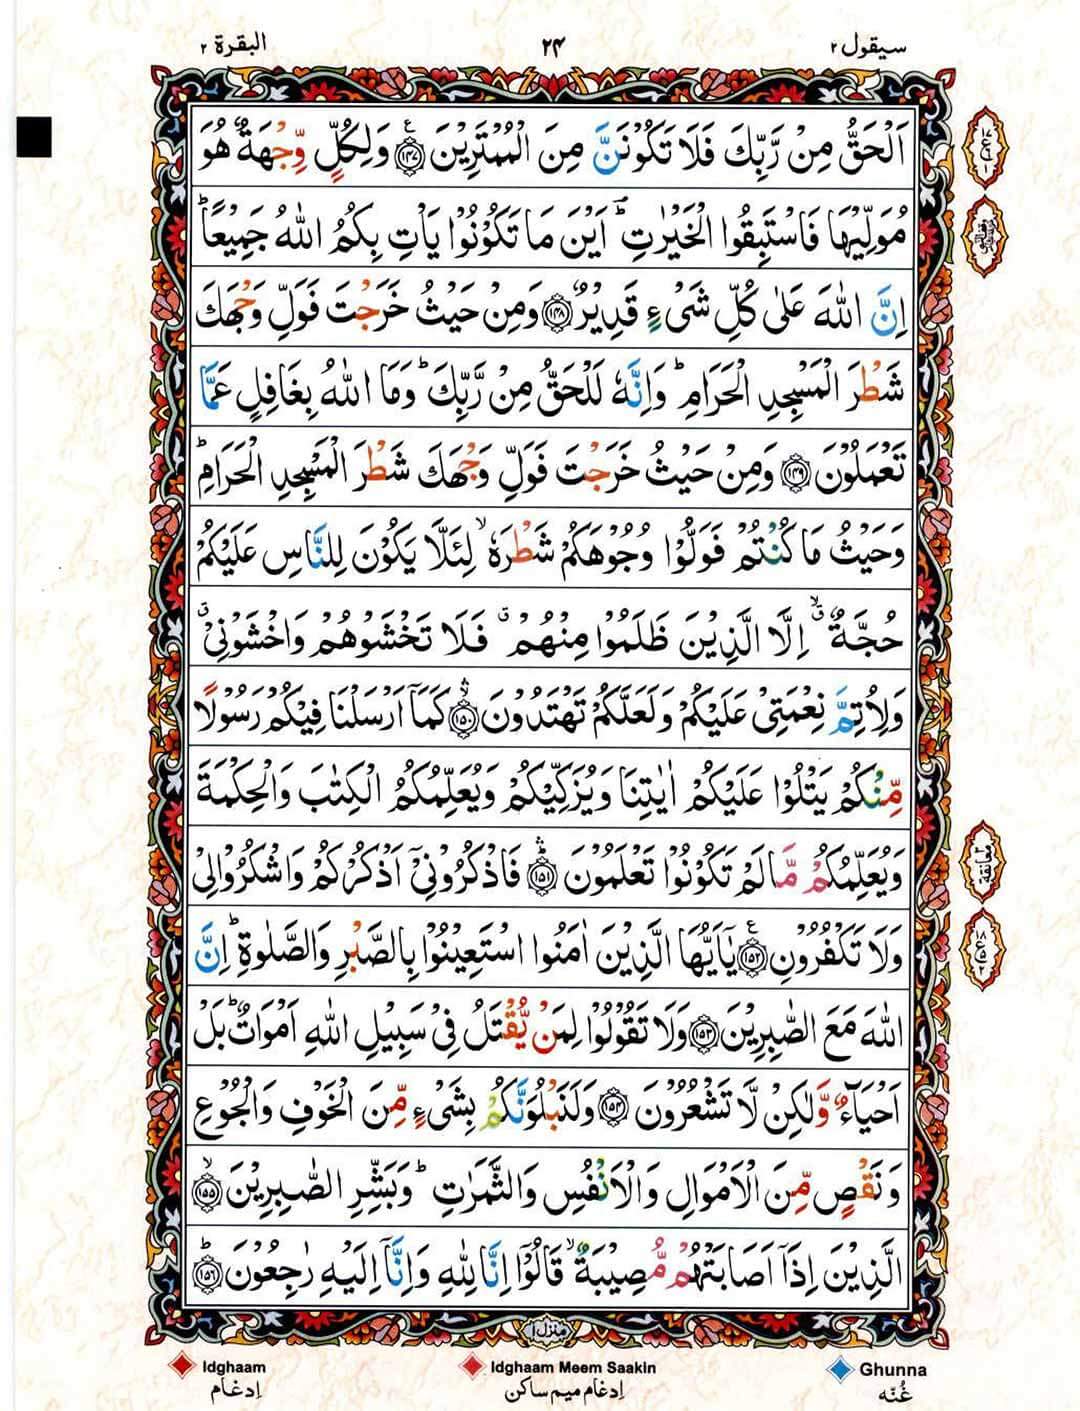 سيقول ٢ ٢٤ البقرة ٢
اَلْحَقُّ مِنْ رَّبِّكَ فَلَا تَكُوْنَنَّ مِنَ الْمُمْتَرِيْنَ ﴿١٤٧﴾ وَلِكُلٍّ وِّجْهَةٌ هُوَ
مُوَلِّيْهَا فَاسْتَبِقُوا الْخَيْرٰتِ ؕ اَيْنَ مَا تَكُوْنُوْا يَاْتِ بِكُمُ اللّٰهُ جَمِيْعًا ؕ
اِنَّ اللّٰهَ عَلٰى كُلِّ شَىْءٍ قَدِيْرٌ ﴿١٤٨﴾ وَمِنْ حَيْثُ خَرَجْتَ فَوَلِّ وَجْهَكَ
شَطْرَ الْمَسْجِدِ الْحَرَامِ ؕ وَاِنَّهٗ لَلْحَقُّ مِنْ رَّبِّكَ ؕ وَمَا اللّٰهُ بِغَافِلٍ عَمَّا
تَعْمَلُوْنَ ﴿١٤٩﴾ وَمِنْ حَيْثُ خَرَجْتَ فَوَلِّ وَجْهَكَ شَطْرَ الْمَسْجِدِ الْحَرَامِ ؕ
وَحَيْثُ مَا كُنْتُمْ فَوَلُّوْا وُجُوْهَكُمْ شَطْرَهٗ ۙ لِئَلَّا يَكُوْنَ لِلنَّاسِ عَلَيْكُمْ
حُجَّةٌ ۙۗ اِلَّا الَّذِيْنَ ظَلَمُوْا مِنْهُمْ ۗ فَلَا تَخْشَوْهُمْ وَاخْشَوْنِىْ ۗ
وَلِاُتِمَّ نِعْمَتِىْ عَلَيْكُمْ وَلَعَلَّكُمْ تَهْتَدُوْنَ ﴿١٥٠﴾ كَمَآ اَرْسَلْنَا فِيْكُمْ رَسُوْلًا
مِّنْكُمْ يَتْلُوْا عَلَيْكُمْ اٰيٰتِنَا وَيُزَكِّيْكُمْ وَيُعَلِّمُكُمُ الْكِتٰبَ وَالْحِكْمَةَ
وَيُعَلِّمُكُمْ مَّا لَمْ تَكُوْنُوْا تَعْلَمُوْنَ ﴿١٥١﴾ فَاذْكُرُوْنِىْٓ اَذْكُرْكُمْ وَاشْكُرُوْا لِىْ
وَلَا تَكْفُرُوْنِ ﴿١٥٢﴾ يٰٓاَيُّهَا الَّذِيْنَ اٰمَنُوا اسْتَعِيْنُوْا بِالصَّبْرِ وَالصَّلٰوةِ ؕ اِنَّ
اللّٰهَ مَعَ الصّٰبِرِيْنَ ﴿١٥٣﴾ وَلَا تَقُوْلُوْا لِمَنْ يُّقْتَلُ فِىْ سَبِيْلِ اللّٰهِ اَمْوَاتٌ ؕ بَلْ
اَحْيَآءٌ وَّلٰكِنْ لَّا تَشْعُرُوْنَ ﴿١٥٤﴾ وَلَنَبْلُوَنَّكُمْ بِشَىْءٍ مِّنَ الْخَوْفِ وَالْجُوْعِ
وَنَقْصٍ مِّنَ الْاَمْوَالِ وَالْاَنْفُسِ وَالثَّمَرٰتِ ؕ وَبَشِّرِ الصّٰبِرِيْنَ ۙ ﴿١٥٥﴾
الَّذِيْنَ اِذَآ اَصَابَتْهُمْ مُّصِيْبَةٌ ۙ قَالُوْٓا اِنَّا لِلّٰهِ وَاِنَّآ اِلَيْهِ رٰجِعُوْنَ ؕ ﴿١٥٦﴾
معانقة
منزل ١
Idghaam Idghaam Meem Saakin Ghunna
اِدغام اِدغام ميم ساكن غُنّه